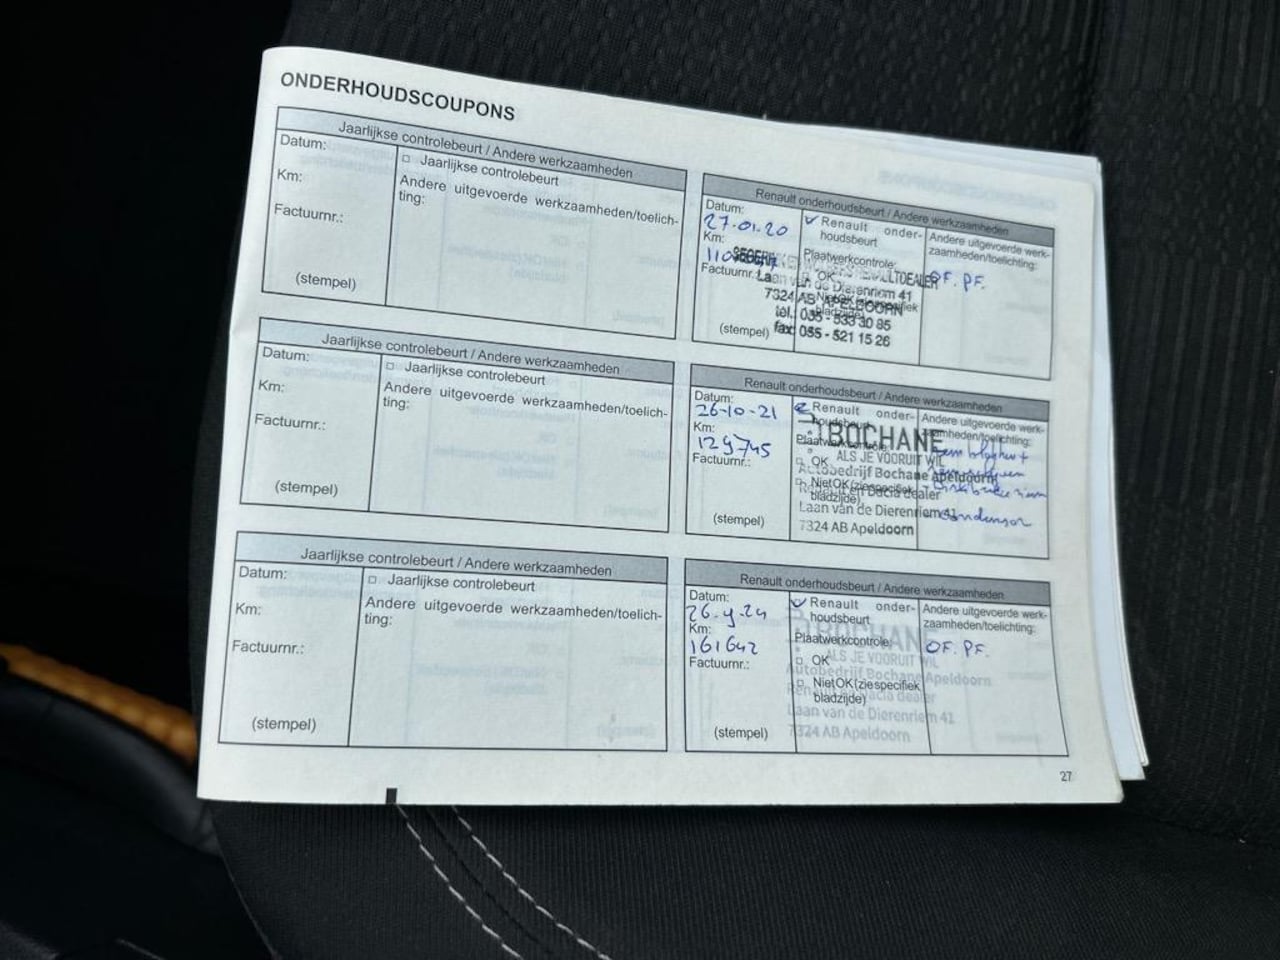 ONDERHOUDSCOUPONS
Jaarlijkse controlebeurt / Andere werkzaamheden
Datum:
Km:
Factuurnr.:
(stempel)
Jaarlijkse controlebeurt
Andere uitgevoerde werkzaamheden/toelich-
ting:
Renault onderhoudsbeurt / Andere werkzaamheden
Datum:
27-01-20
Km:
Factuurnr.:
(stempel)
Renault onder-
houdsbeurt
Plaatwerkcontrole:
OK
Niet OK (zie specifiek
bladzijde)
Laan van de Dierenriem 41
7324 AB APELDOORN
tel.: 055 - 533 30 85
fax: 055 - 521 15 26
Andere uitgevoerde werk-
zaamheden/toelichting:
OF. PF.
Jaarlijkse controlebeurt / Andere werkzaamheden
Datum:
Km:
Factuurnr.:
(stempel)
Jaarlijkse controlebeurt
Andere uitgevoerde werkzaamheden/toelich-
ting:
Renault onderhoudsbeurt / Andere werkzaamheden
Datum:
26-10-21
Km:
129745
Factuurnr.:
(stempel)
Renault onder-
houdsbeurt
Plaatwerkcontrole:
OK
Niet OK (zie specifiek
bladzijde)
BOCHANE
ALS JE VOORUIT WIL
Autobedrijf Bochane Apeldoorn
Renault en Dacia dealer
Laan van de Dierenriem 41
7324 AB Apeldoorn
Andere uitgevoerde werk-
zaamheden/toelichting:
Jaarlijkse controlebeurt / Andere werkzaamheden
Datum:
Km:
Factuurnr.:
(stempel)
Jaarlijkse controlebeurt
Andere uitgevoerde werkzaamheden/toelich-
ting:
Renault onderhoudsbeurt / Andere werkzaamheden
Datum:
Km:
161642
Factuurnr.:
(stempel)
Renault onder-
houdsbeurt
Plaatwerkcontrole:
OK
Niet OK (zie specifiek
bladzijde)
BOCHANE
ALS JE VOORUIT WIL
Autobedrijf Bochane Apeldoorn
Renault en Dacia dealer
Laan van de Dierenriem 41
7324 AB Apeldoorn
Andere uitgevoerde werk-
zaamheden/toelichting:
OF. PF.
27